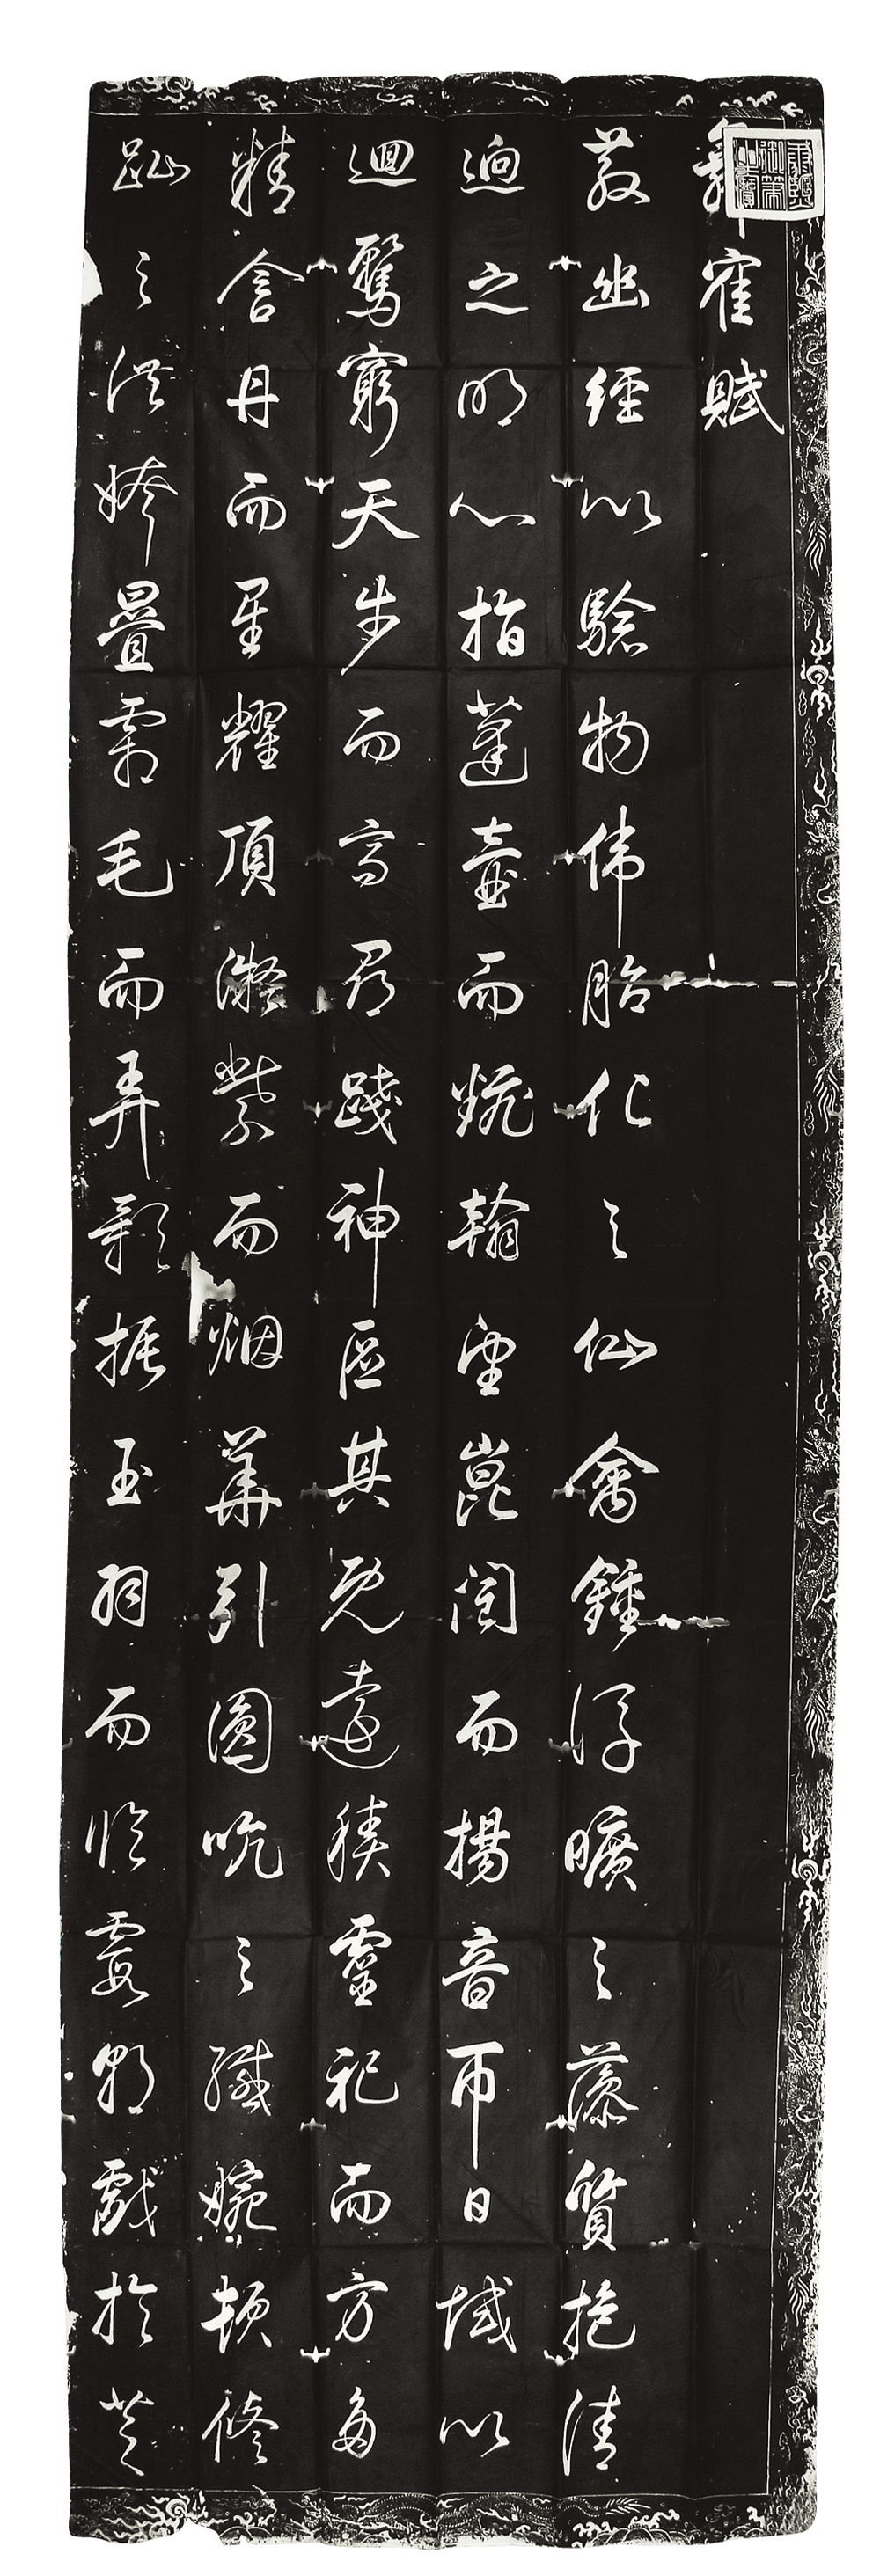 康熙御筆之寶
舞寉賦
散幽經以驗物偉胎化之仙禽鍾浮曠之藻質抱清
迥之明心指蓬壺而翻翰望崑閬而揚音帀日域以
迴騖窮天步而高尋踐神區其既遠積靈祀而方多
精含丹而星耀頂凝紫而烟華引圓吭之纖婉頓修
趾之洪姱疊霜毛而弄影振玉羽而臨霞朝戲於芝